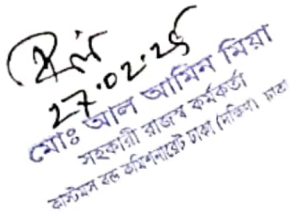 27.02.25
মোঃ আল আমিন মিয়া
সহকারী রাজস্ব কর্মকর্তা
কাস্টমস বন্ড কমিশনারেট ঢাকা (দক্ষিণ) ঢাকা